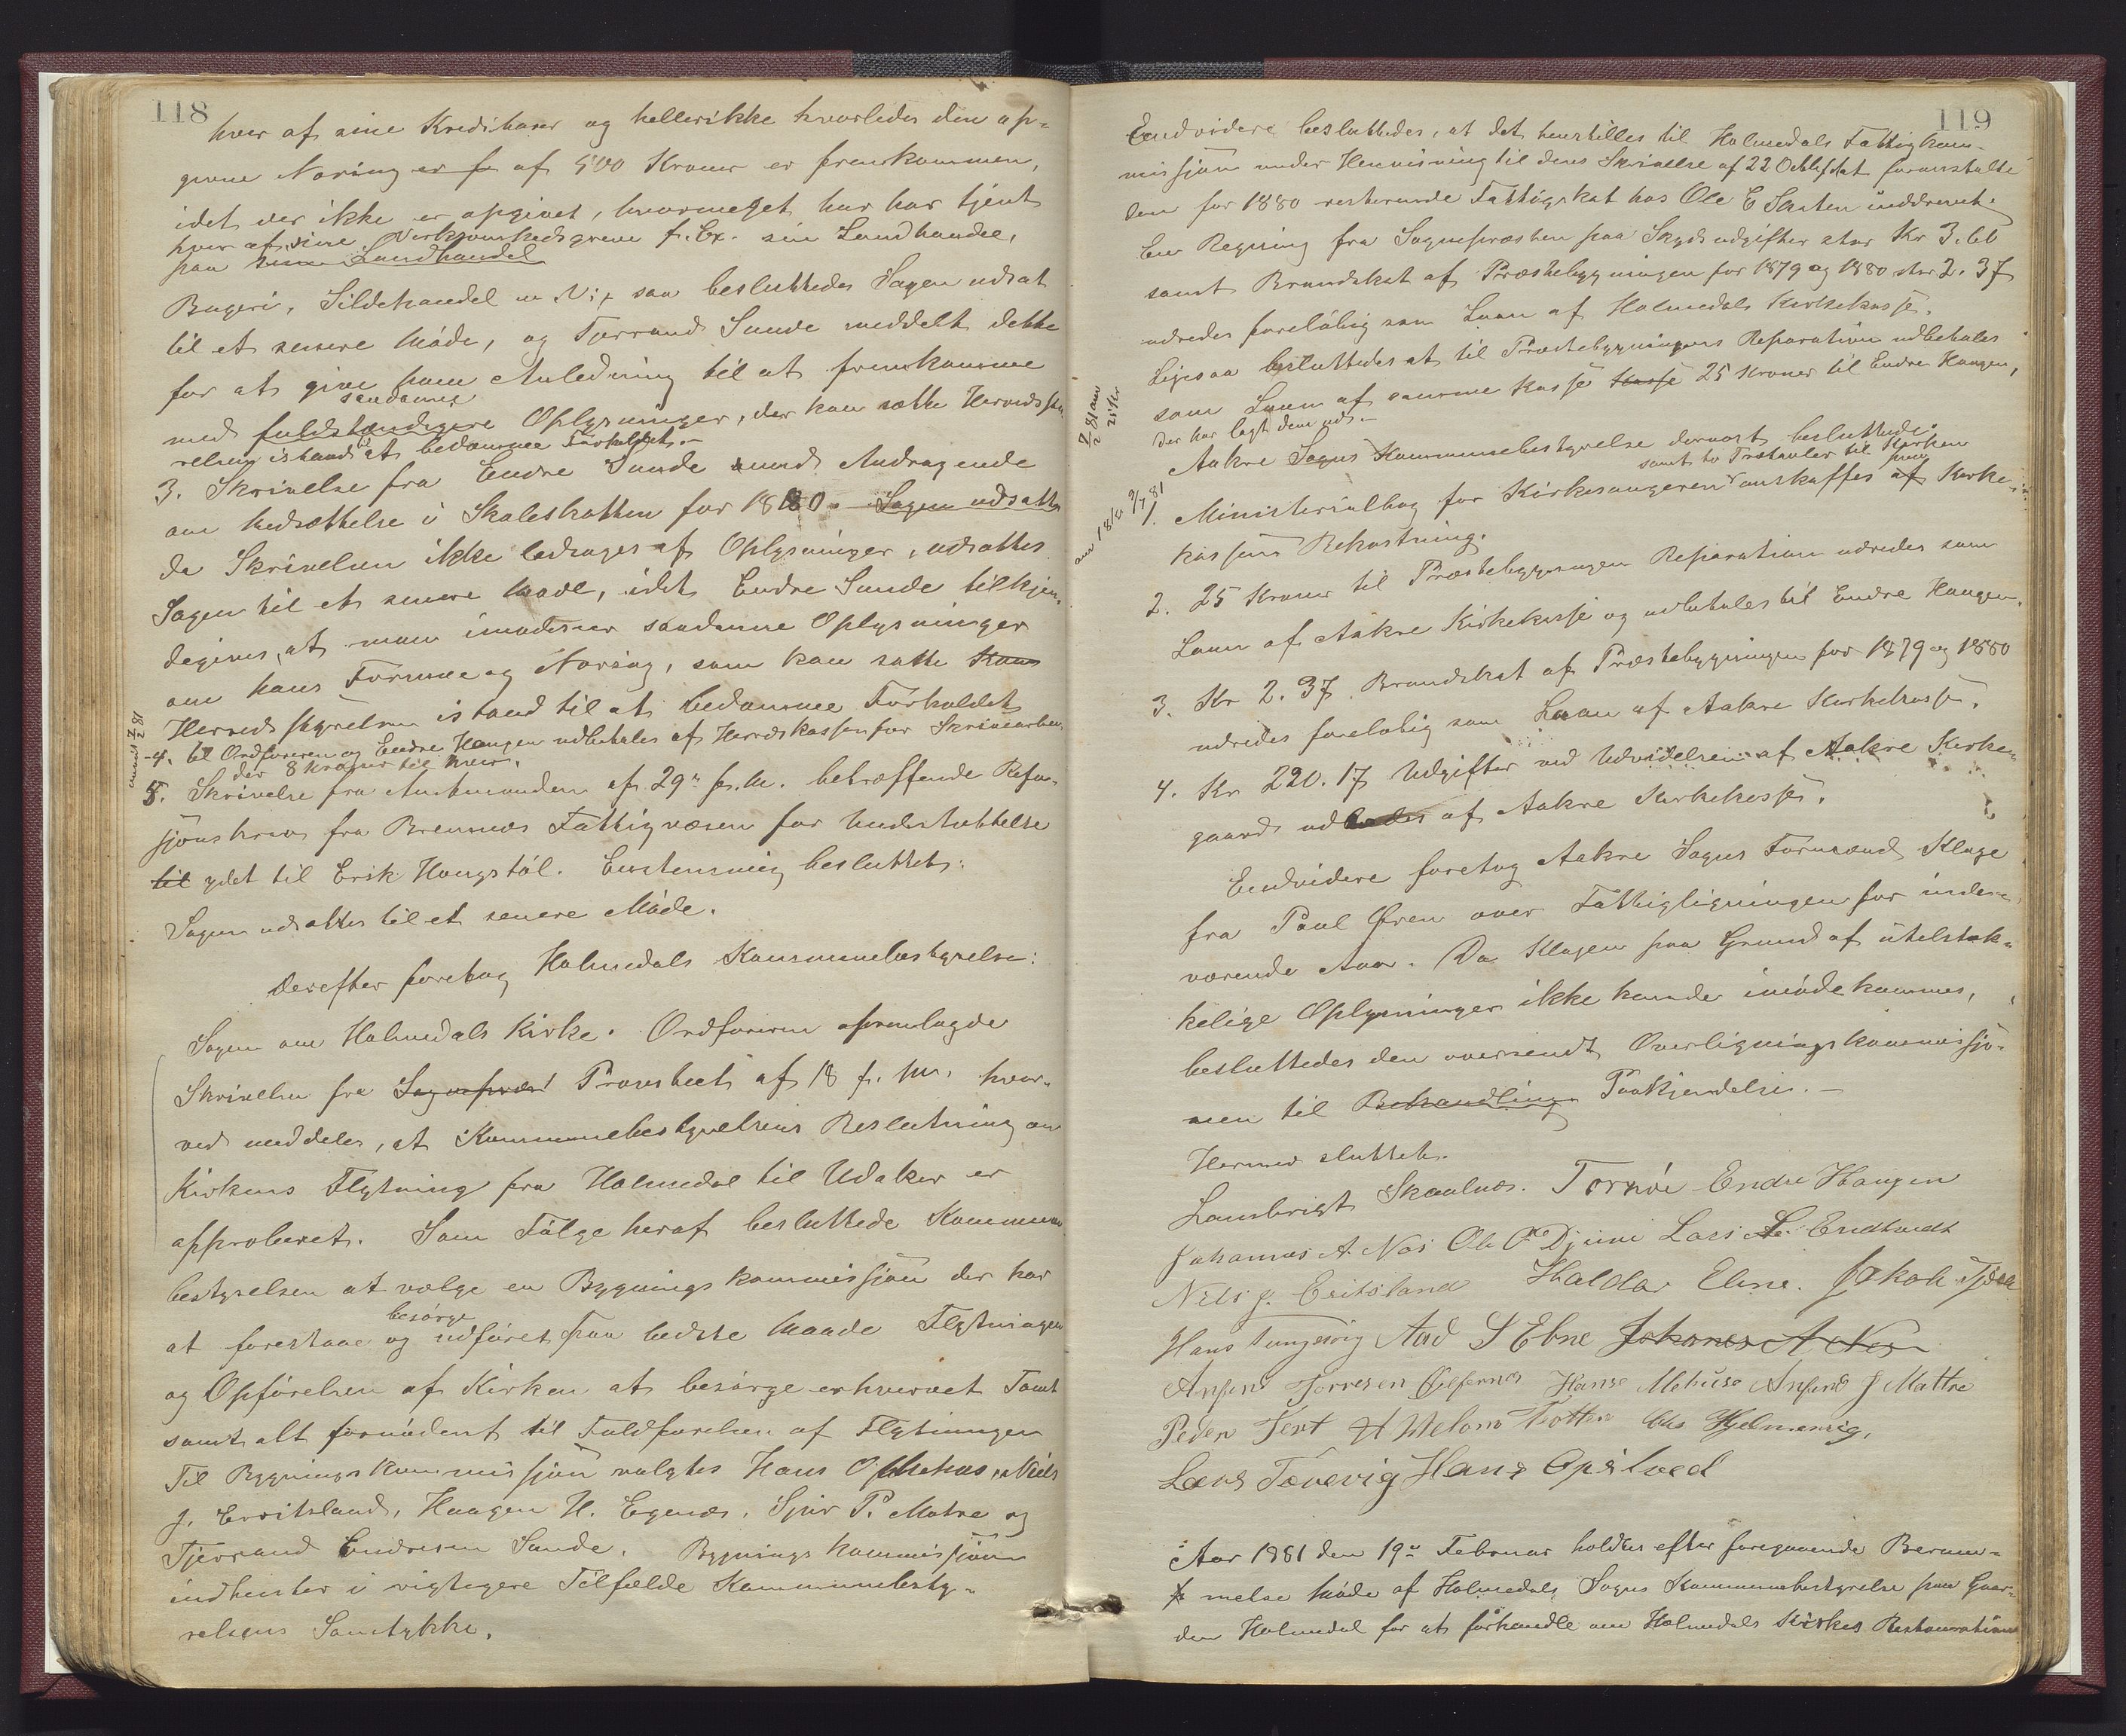 118
hver af sine Kreditorer og hellerikke hvorledes den op-
givne Næring er fr af 500 Kroner er fremkommen,
idet der ikke er opgivet, hvormeget har har tjent
paa hver af sine Virksomhedsgrene f. Ex. sin Landhandel,
sin Landhandel
Bageri, Sildehandel m. V; saa besluttedes Sagen udsat
til et senere Møde, og Tjerrand Sunde meddelt dette
for at give ham Anledning til at fremkomme
med fuldstændigere saadanne Oplysninger, der kan sætte Herredssty-
relsen istand til at bedømme Forholdet.-
3. Skrivelse fra Endre Sunde med Andragende
om Nedsættelse i Skoleskatten for 1880. Sagen udsattes
da Skrivelsen ikke ledsages af Oplysninger, udsattes
Sagen til et senere Møde, idet Endre Sunde tilkjen-
degives, at man imødeser saadanne Oplysninger
om hans Formue og Næring, som kan sætte Kom
Herredsstyrelsen istand til at bedømme Forholdet
4. til Ordføreren og Endre Haugen udbetales af Herredskassen for Skrivearbei-
der 8 Kroner til hver.
5. Skrivelse fra Amtmanden af 29de f. M. betræffende Refu-
sjonskrav fra Bremnes Fattigvæsen for Understøttelse
til ydet til Erik Haugstøl. Enstemmig besluttet:
Sagen udsattes til et senere Møde.
Derefter foretog Holmedals Kommunebestyrelse:
Sagen om Holmedals Kirke. Ordføreren fremlagde
Skrivelse fra Sognepræst Provstiet af 18 f. M. hvor-
ved meddeles, at Kommunebestyrelsens Beslutning om
Kirkens Flytning fra Holmedal til Udaker er
approberet. Som Følge heraf besluttede Kommune
bestyrelsen at vælge en Bygningskommissjon der har
at forestaae og besørge udføret paa bedste Maade Flytningen
og Opførelsen af Kirken at besørge erhvervet Tomt
samt alt fornødent til Fuldførelsen af Flytningen
Til Bygningskommissjon valgtes Hans O Mehus, Niels
J. Eritsland, Haagen H. Egenæs, Sjur P. Matre og
Tjerrand Endresen Sunde. Bygningskommissjonen
indhenter i vigtigere Tilfælde Kommunebesty-
relsens Samtykke.
119
Endvidere besluttedes, at det henstilles til Holmedals Fattigkom-
missjon under Henvisning til dens Skrivelse af 22 Octbr sidst foranstalte
den for 1880 resterende Fattigskat hos Ole E Skaten inddrevet.
En Regning fra Sognepræsten paa Skydsudgifter stor Kr 3.60
samt Brandskat af Præstebygningen for 1879 og 1880 stor 2.37
udredes foreløbig som Laan af Holmedals Kirkekasse.
Ligesaa besluttedes at til Præstebygningens Reparation udbetales
som Laan af samme Kasse Kasse 25 Kroner til Endre Haugen,
der har lagt dem ud.-
Aakre Sogns Kommunebestyrelse dernæst besluttede:
1. Ministerialbog for Kirkesangeren samt to Trætavler til Kirken anskaffes paa af Kirke-
kassens Bekostning.
2. 25 Kroner til Præstebygningen Reparation udredes som
Laan af Aakre Kirkekasse og udbetales til Endre Haugen.
3. Kr 2.37 Brandskat af Præstebygningen for 1879 og 1880
udredes foreløbig som Laan af Aakre Kirkekasse.
4. Kr 220.17 Udgifter ved Udvidelsen af Aakre Kirke-
gaard udredes af Aakre Kirkekasse.
Endvidere foretog Aakre Sogns Formænd Klage
fra Poul Øren over Fattigligningen for inde-
værende Aar. Da Klagen paa Grund af utilstræk-
kelige Oplysninger ikke kunde imødekommes,
besluttedes den oversendt Overligningskommissjo-
nen til Behandling Paakjendelse.-
Hermed sluttet.
Lambrigt Skaalnes. Tornøe Endre Haugen
Johannes A. Næs Ole O Djuve Lars L. Endtvedt
Nils J. Eritsland Haldor Ebne. Jakob
Hans Tungesvig And S Ebne Johannes A Næs
Ansend Torresen Hans Mehuse Ansend J Mattre
Peder Tent H Hjelmervig,
Lars Tævevig Hans Opsitved
Aar 1881 den 19de Februar holdtes efter foregaaende Beram-
melse Møde af Holmedals Sogns Kommunebestyrelse paa Gaar-
den Holmedal for at forhandle om Holmedals Kirkes Restauration